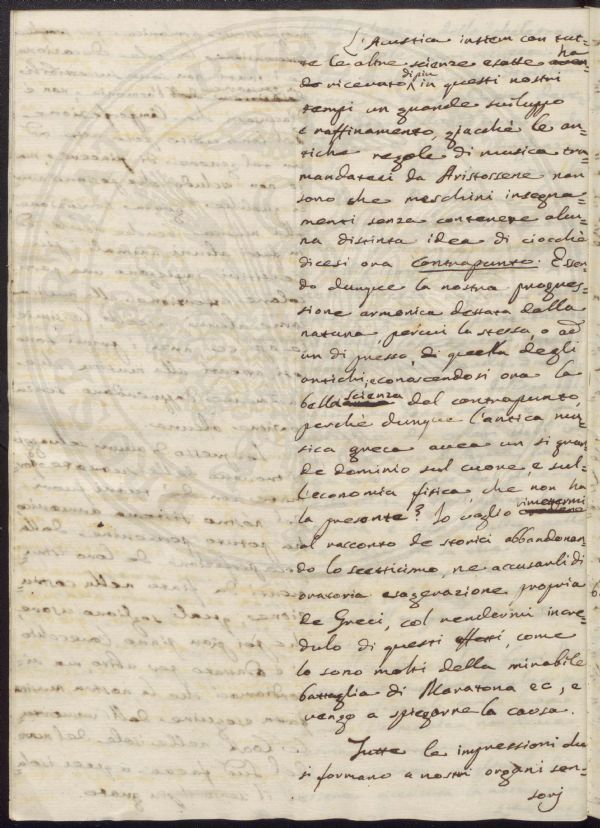 L'Acustica insiem con tut-
te le altre scienze esatte ha
do ricevato di piu in questi nostri
tempi un grande sviluppo
e raffinamento, giacchè le an-
tiche regole di musica tra-
mandateci da Aristossene non
sono che meschini insegna-
menti senza contenere alcu-
na distinta idea di ciocchè
dicesi ora contrapunto. Essen-
do dunque la nostra progres-
sione armonica dettata dalla
natura percui la stessa, o ad
un di presso, di quella degli
antichi, e conoscendosi ora la
bella scienza del contrapunto,
perchè dunque l'antica mu-
sica greca avea un si gran-
de dominio sul cuore, e sul-
l'economia fisica, che non ha
la presente? Io voglio rimettermi
al racconto de storici abbandonan-
do lo scetticismo, ne accusarli di
oratoria esagerazione propria
de Greci, col rendermi incre-
dulo di questi effetti, come
lo sono molti della mirabile
battaglia di Maratona ec, e
vengo a spiegarne la causa.
Tutte le impressioni che
si formano a nostri organi sen-
sorj